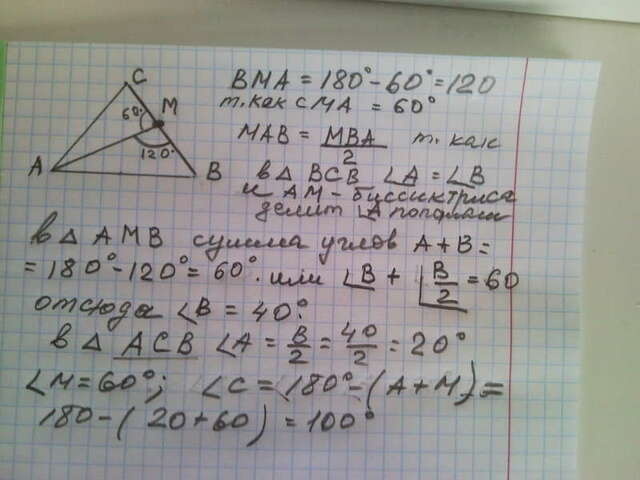 C
M
60°
120°
A
B
BMA = 180° - 60° = 120
т.как CMA = 60°
MAB = MBA/2 т. как
в △ BCB ∠A = ∠B
и AM - биссиктриса
делит ∠A пополам
в △ AMB сумма углов A + B =
= 180° - 120° = 60°. или ∠B + ∠B/2 = 60
отсюда ∠B = 40°.
в △ ACB ∠A = B/2 = 40/2 = 20°
∠M = 60°; ∠C = (180° - (A + M) =
180 - (20 + 60) = 100°